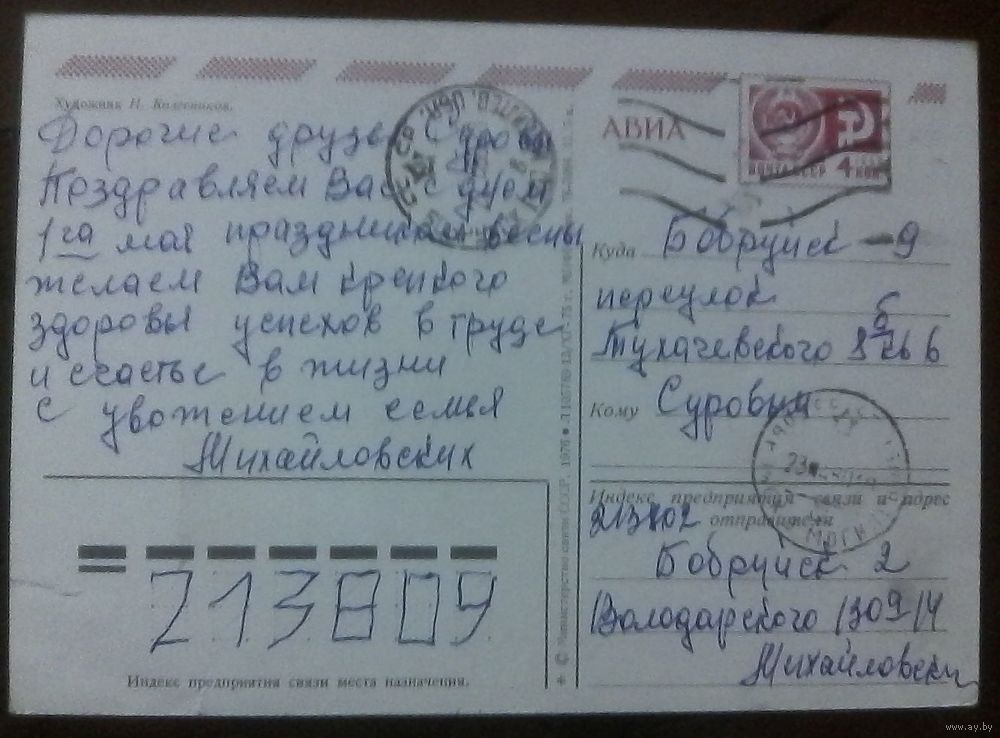 Художник И. Колесников.
Дорогие друзья
Поздравляем Вас с днем
1го мая праздником весны
желаем Вам крепкого
здоровья успехов в труде
и счастье в жизни
с уважением семья
Михайловских
213809
Индекс предприятия связи места назначения.
© Министерство связи СССР, 1976
АВИА
ПОЧТА СССР 4 КОП
Куда Бобруйск - 9
переулок
Тухачевского 8б кв 6
Кому Суровым
Индекс предприятия связи и адрес
отправителя
Бобруйск 2
Володарского
Михайловски
www.ay.by